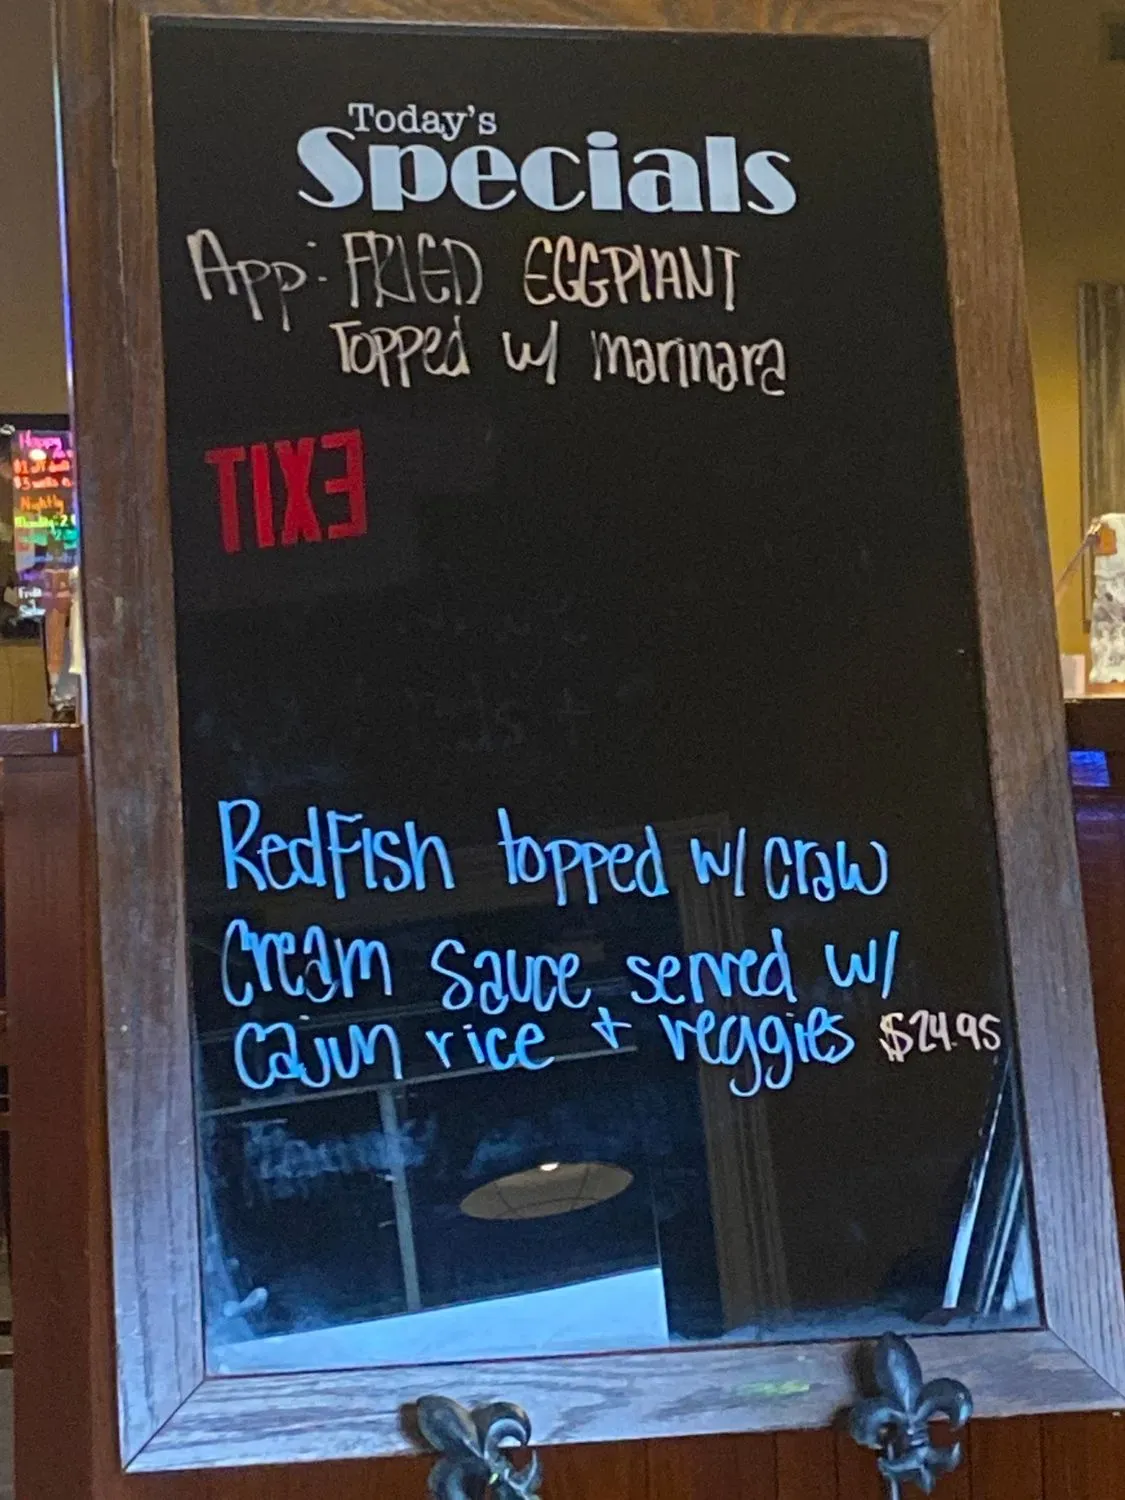 Today's
Specials
App: FRIED EGGPLANT
Topped w/ marinara
EXIT
RedFish topped w/ craw
cream sauce served w/
cajun rice + veggies $24.95
Happy
Nightly